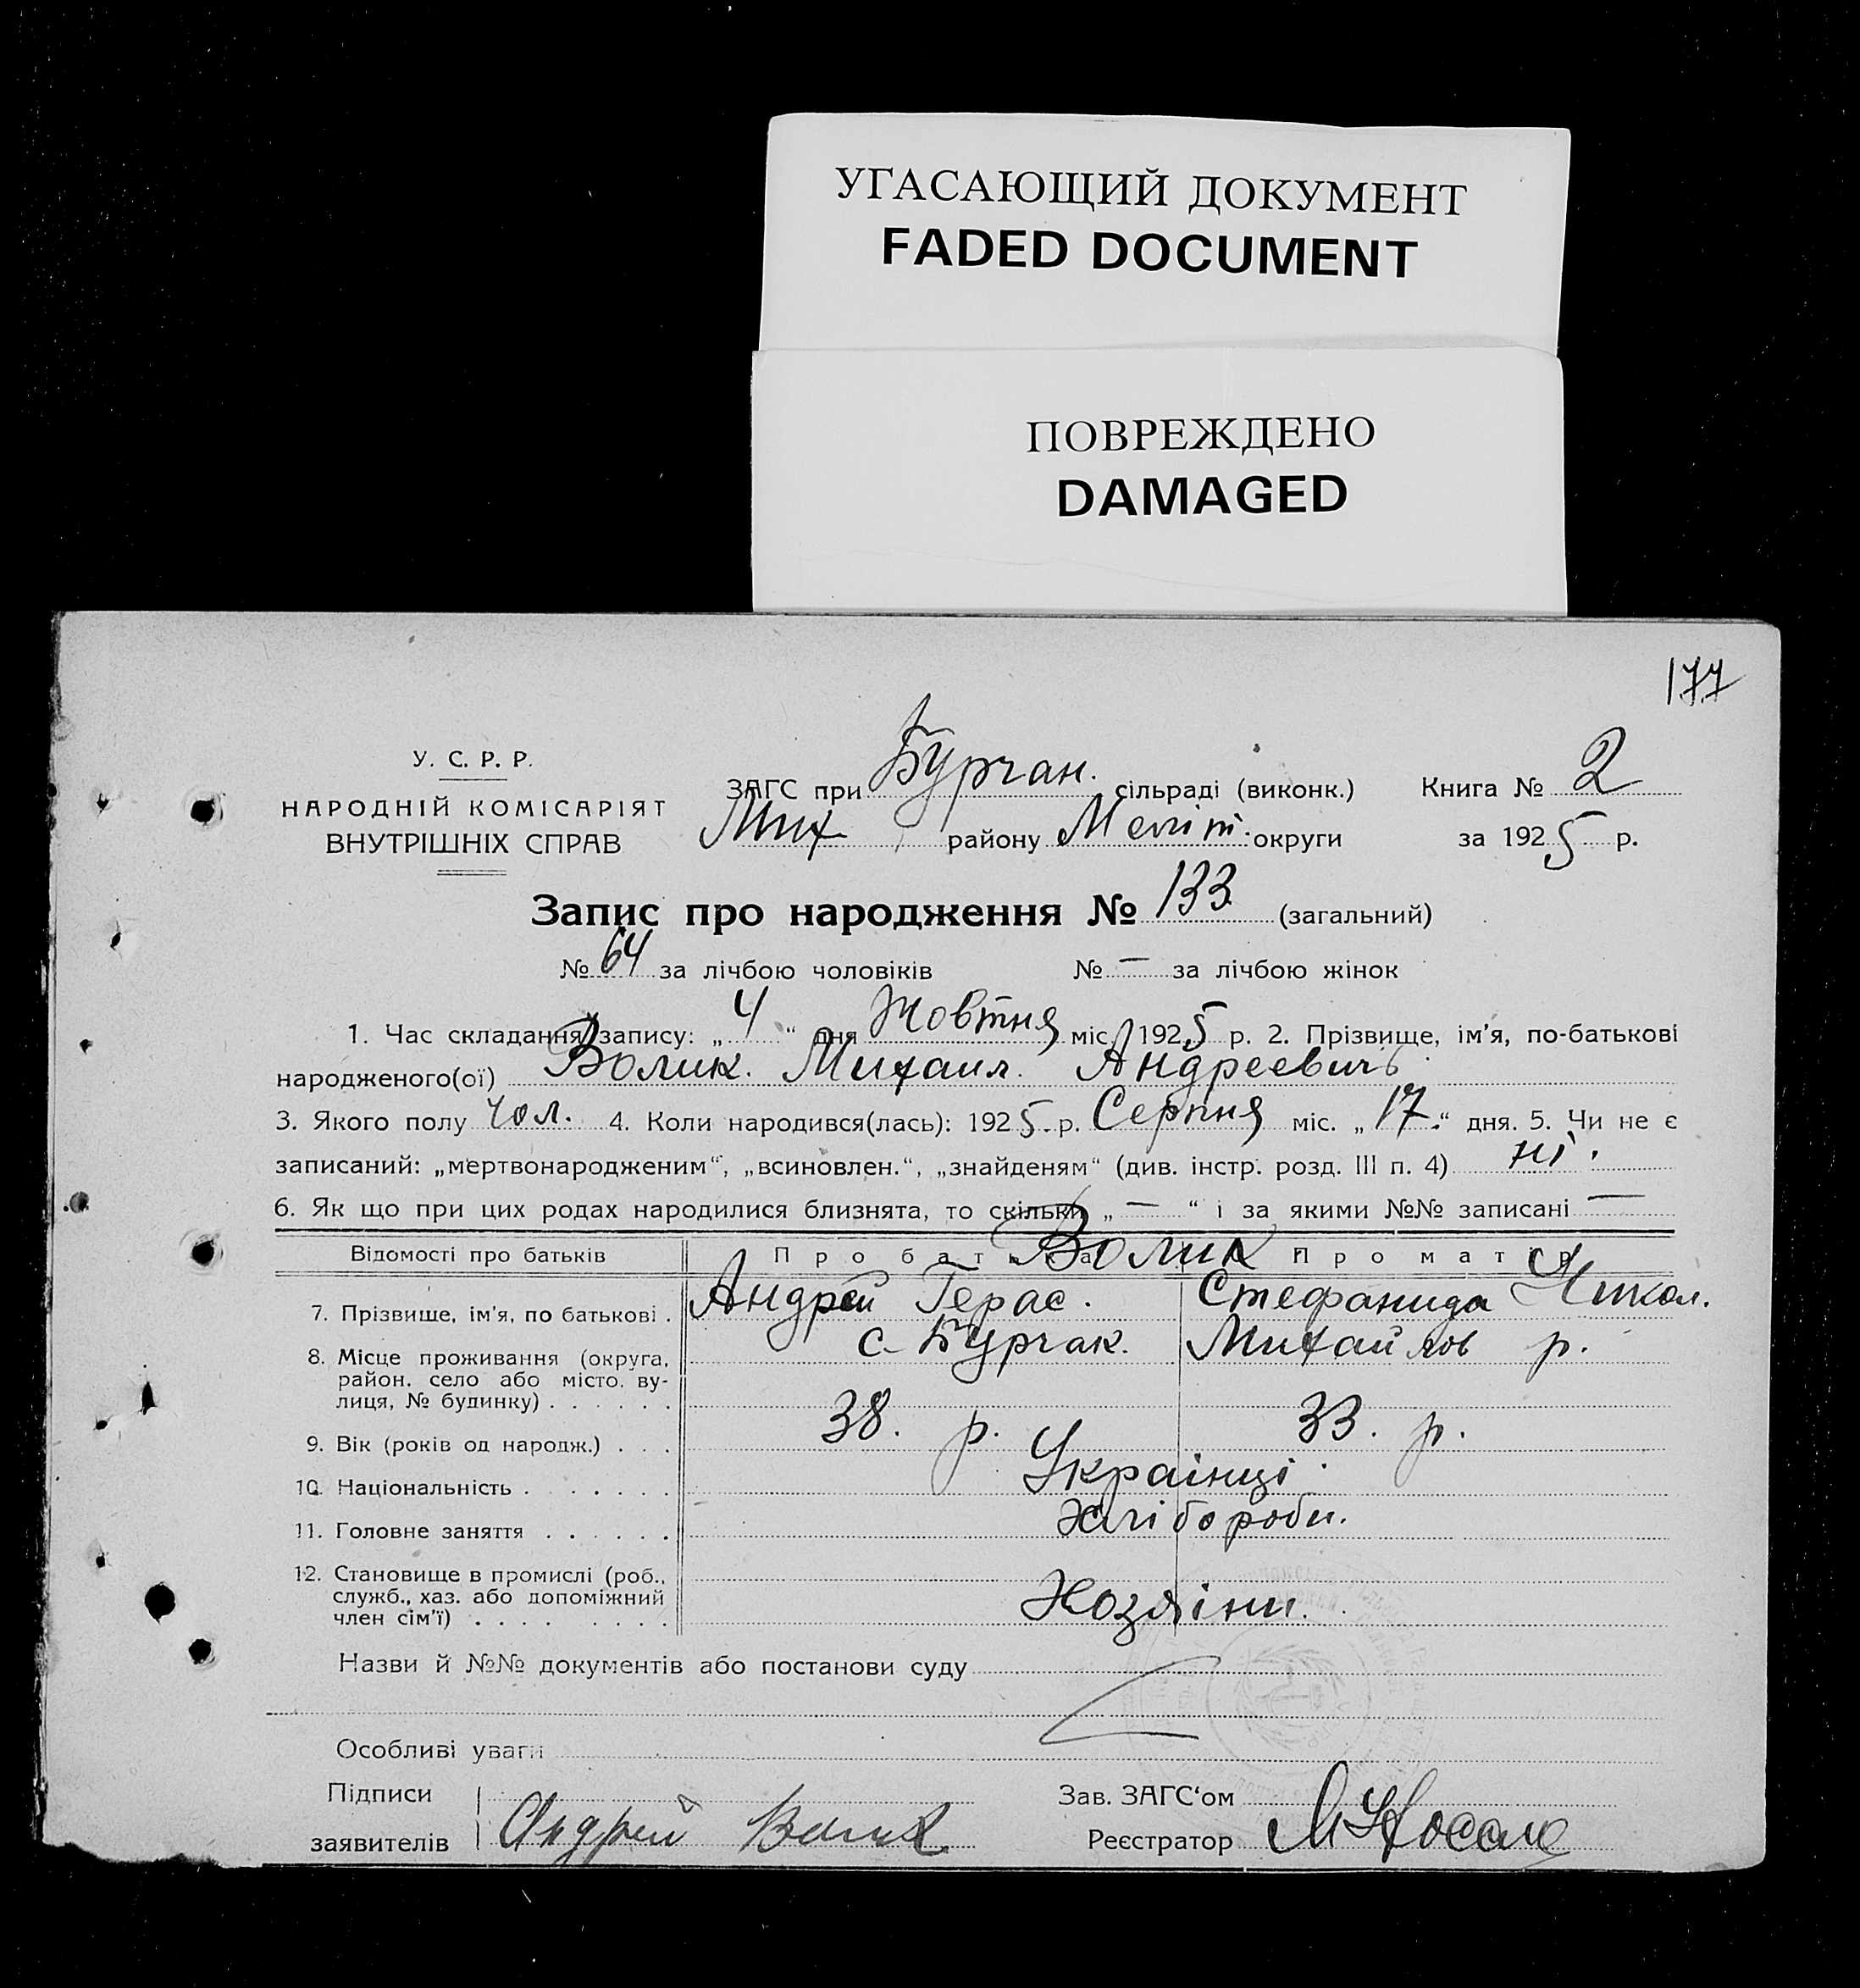 УГАСАЮЩИЙ ДОКУМЕНТ
FADED DOCUMENT
ПОВРЕЖДЕНО
DAMAGED
177
У. С. Р. Р.
НАРОДНІЙ КОМІСАРІЯТ
ВНУТРІШНІХ СПРАВ
ЗАГС при Бурчан. сільраді (виконк.) Книга № 2
Мих району Меліт. округи за 1925 р.
Запис про народження № 133 (загальний)
№ 64 за лічбою чоловіків № — за лічбою жінок
1. Час складання запису: „4“ дня Жовтня міс. 1925 р. 2. Прізвище, ім'я, по-батькові
народженого(ої) Волик. Михаил. Андреевичь
3. Якого полу чол. 4. Коли народився(лась): 1925 р. Серпня міс. „17“ дня. 5. Чи не є
записаний: „мертвонародженим“, „всиновлен.“, „знайденям“ (див. інстр. розд. III п. 4) ні.
6. Як що при цих родах народилися близнята, то скільки „—“ і за якими №№ записані —
Відомості про батьків Про батька Про матір
Волик
7. Прізвище, ім'я, по батькові . Андрей Герас. Стефанида Никол.
8. Місце проживання (округа, район, село або місто, вулиця, № будинку) . . . . . . с. Бурчак. Михайлов р.
9. Вік (років од народж.) . . . 38. р. 33. р.
10. Національність . . . . . . . Українці.
11. Головне заняття . . . . . . Хлібороби.
12. Становище в промислі (роб., служб., хаз. або допоміжний член сім'ї) . . . . . . . . Хозяіни.
Назви й №№ документів або постанови суду
Особливі уваги
Підписи Зав. ЗАГС'ом
заявителів Андрей Волик Реєстратор